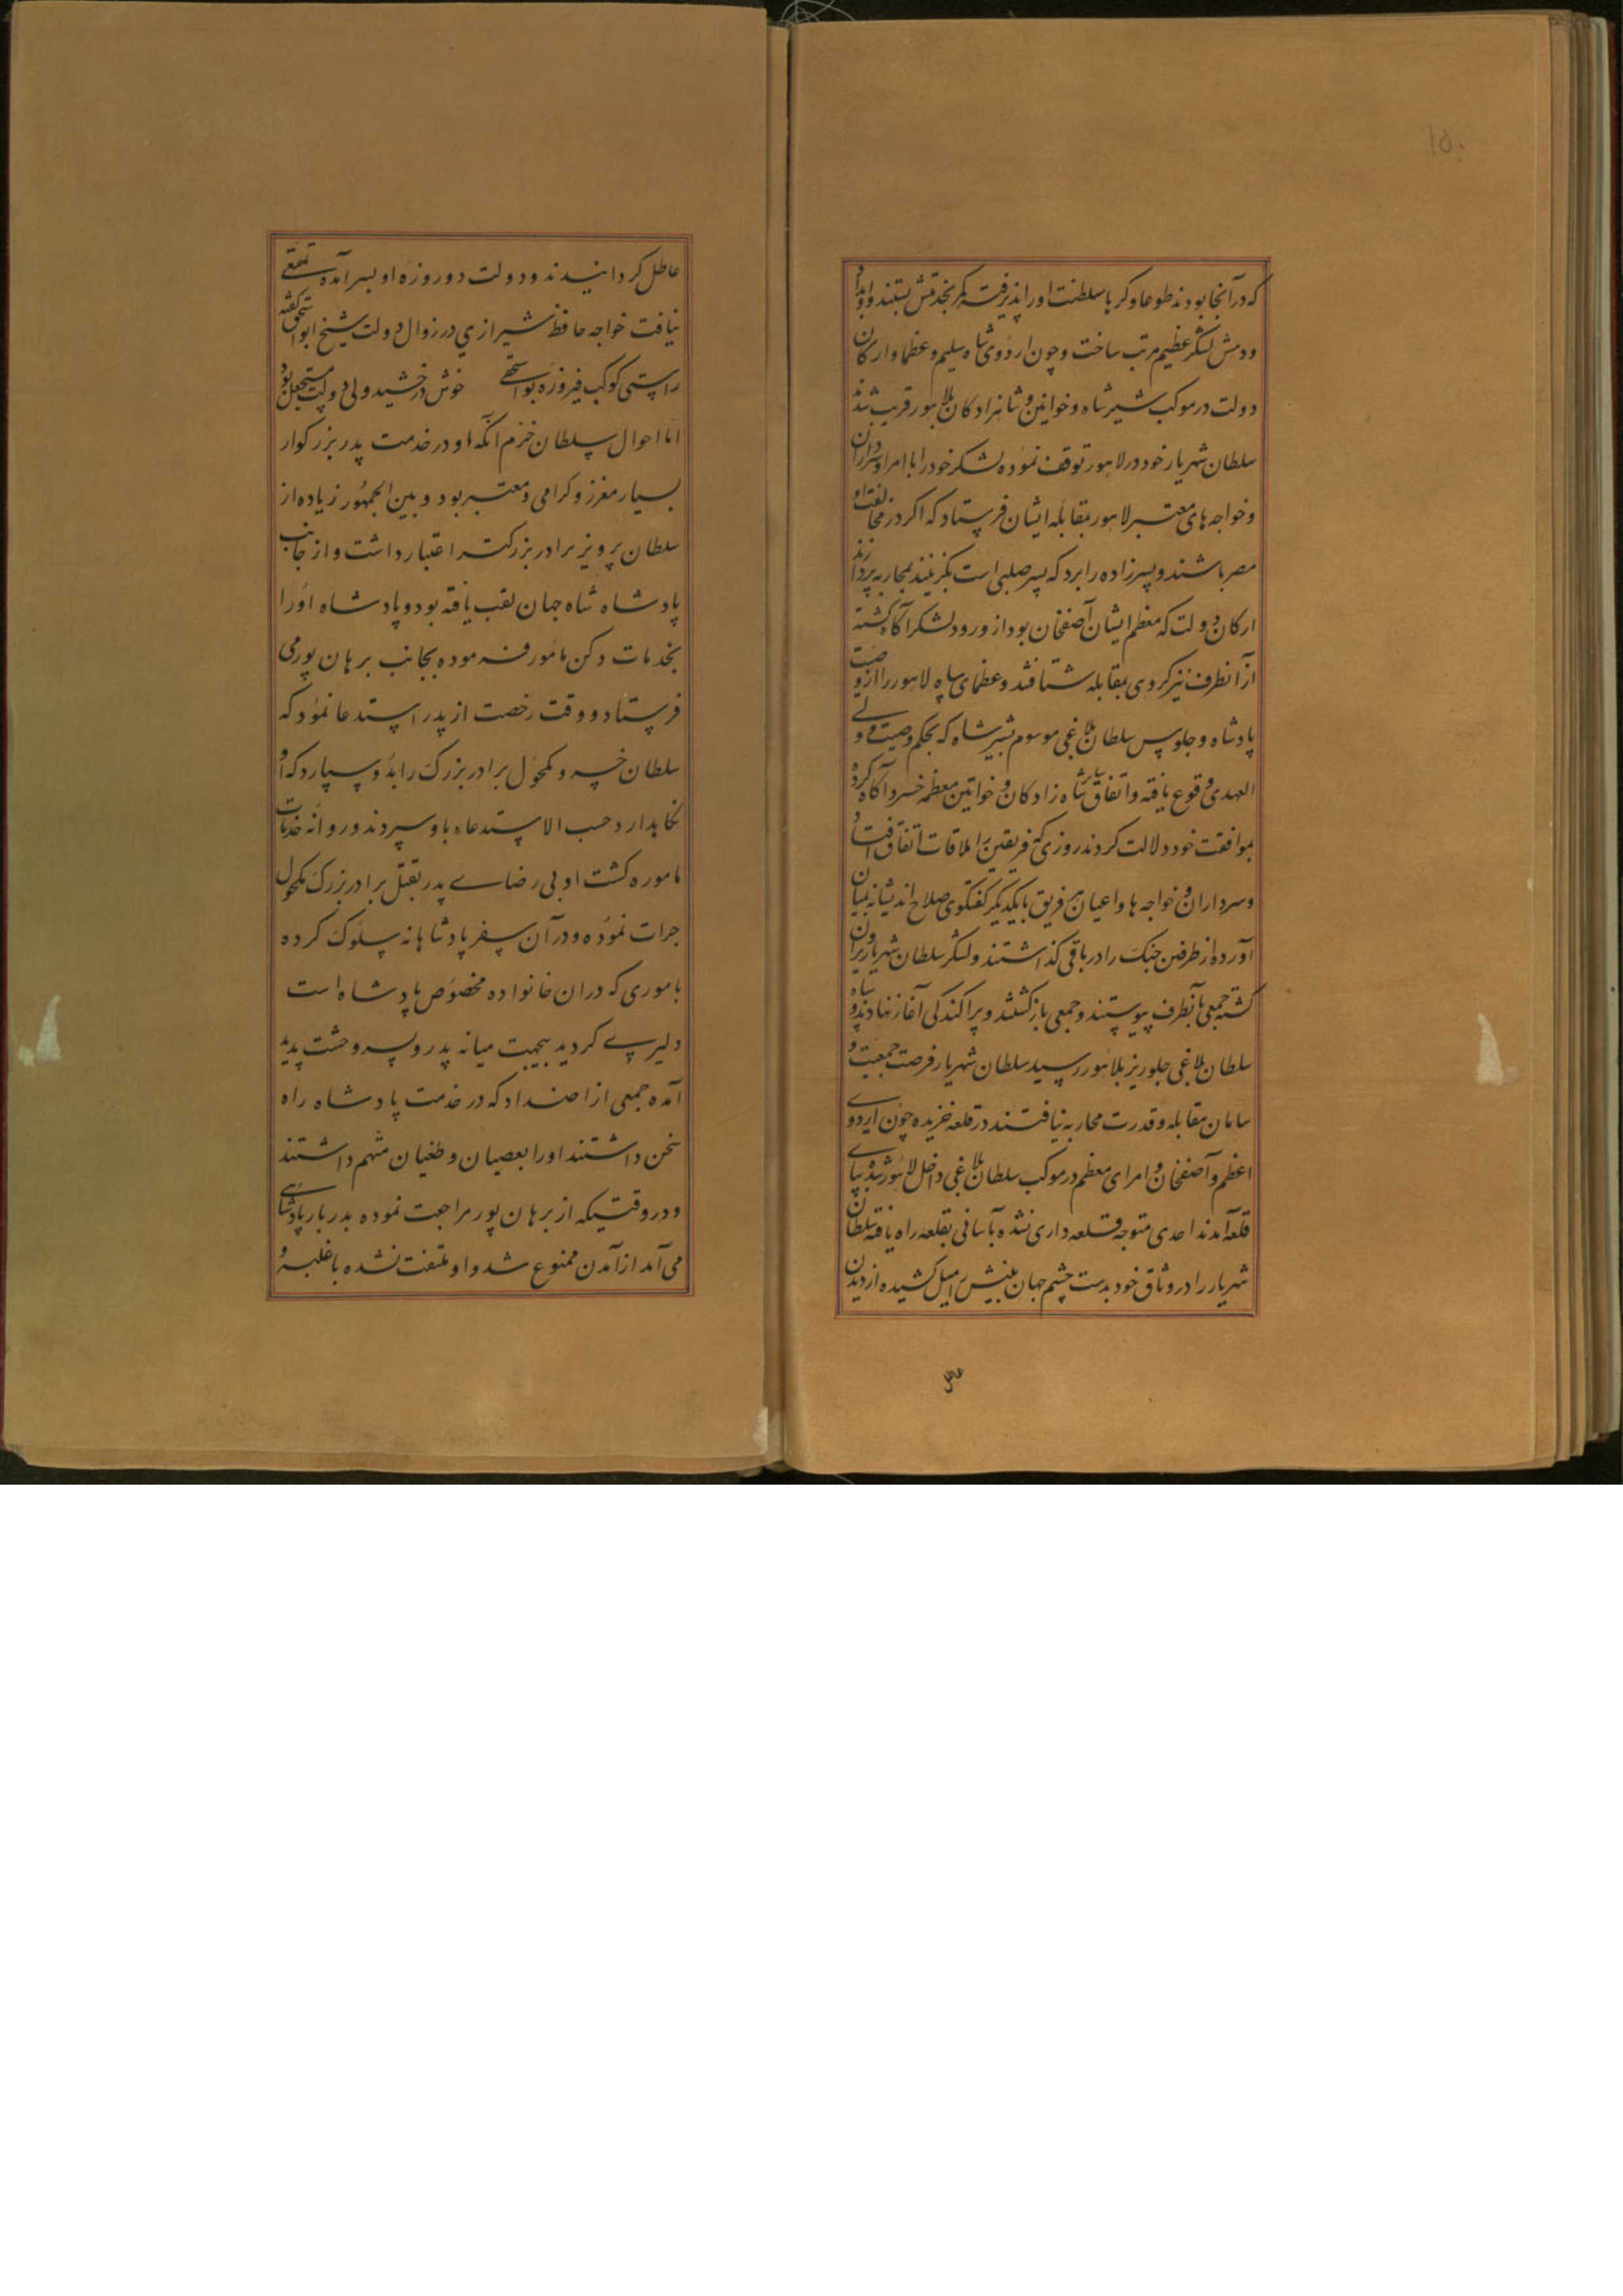 ۱۵۰
که در آنجا بودند طوعا و کرها سلطنت او را پذیرفته کمر بخدمتش بستند و او ابدا
ودمش لشکر عظیم مرتب ساخت و چون اردوی شاه سلیم و عظما و ارکان
دولت در موکب شیر شاه و خوانین و شاهزادکان بلاهور قریب شدند
سلطان شهریار خود در لاهور توقف نموده لشکر خود را با امرا و سرداران
و خواجه های معتبر لاهور بمقابله ایشان فرستاد که اکر در مخالفت او
مصر باشند و پسرزاده را برد که پسر صلبی است بکزینند بمحاربه پردازند
ارکان دولت که معظم ایشان آصفخان بود از ورود لشکر آکاه کشته
از آنطرف نیز کروهی بمقابله شتافتند و عظمای سپاه لاهور را از وصیت
پادشاه و جلوس سلطان بلاغی موسوم بشیر شاه که بحکم وصیت و ولی
العهدی وقوع یافته و اتفاق سایر شاه زادکان و خواتین معظمه خسرو آکاه کرده
بموافقت خود دلالت کردند روزی که فریقین را ملاقات اتفاق افتاد
و سرداران و خواجه ها و اعیان هر فریق با یکدیکر کفتکوی صلاح اندیشانه بمیان
آورده از طرفین جنک را در باقی کذاشتند و لشکر سلطان شهریار ویران
کشته جمعی بآنطرف پیوستند و جمعی باز کشتند و پراکندکی آغاز نهادند و سپاه
سلطان بلاغی جلوریز بلاهور رسید سلطان شهریار فرصت جمعیت و
سامان مقابله و قدرت محاربه نیافتند در قلعه خزیده چون اردوی
اعظم و آصفخان و امرای معظم در موکب سلطان بلاغی داخل لاهور شده بپای
قلعه آمدند احدی متوجه قلعه داری نشده بآسانی بقلعه راه یافته سلطان
شهریار را در وثاق خود بدست چشم جهان بینش را میل کشیده از دیدن
عاطل کردانیدند و دولت دو روزه او بسر آمده تمتعی
نیافت خواجه حافظ شیرازی در زوال دولت شیخ ابواسحق کفته
راستی کوکب فیروزه بواسحقی خوش درخشید ولی دولت مستعجل بود
اما احوال سلطان خرم آنکه او در خدمت پدر بزرکوار
بسیار معزز و کرامی و معتبر بود و بین الجمهور زیاده از
سلطان پرویز برادر بزرکتر اعتبار داشت و از جانب
پادشاه شاه جهان لقب یافته بود و پادشاه او را
بخدمات دکن مامور فرموده بجانب برهان پور می
فرستاد و وقت رخصت از پدر استدعا نمود که
سلطان خسرو مکحول برادر بزرک را بدو سپارد که او
نکاهدارد حسب الاستدعاه باو سپردند و روانه خدمات
ماموره کشت او بی رضای پدر بقتل برادر بزرک مکحول
جرات نموده و در آن سفر پادشاهانه سلوک کرده
باموری که در ان خانواده مخصوص پادشاه است
دلیری کردید بجهت میانه پدر و پسر وحشت پدید
آمده جمعی از اضداد که در خدمت پادشاه راه
سخن داشتند او را بعصیان و طغیان متهم داشتند
و در وقتیکه از برهان پور مراجعت نموده بدربار پادشاهی
می آمد از آمدن ممنوع شد و او ملتفت نشده با غلبه و